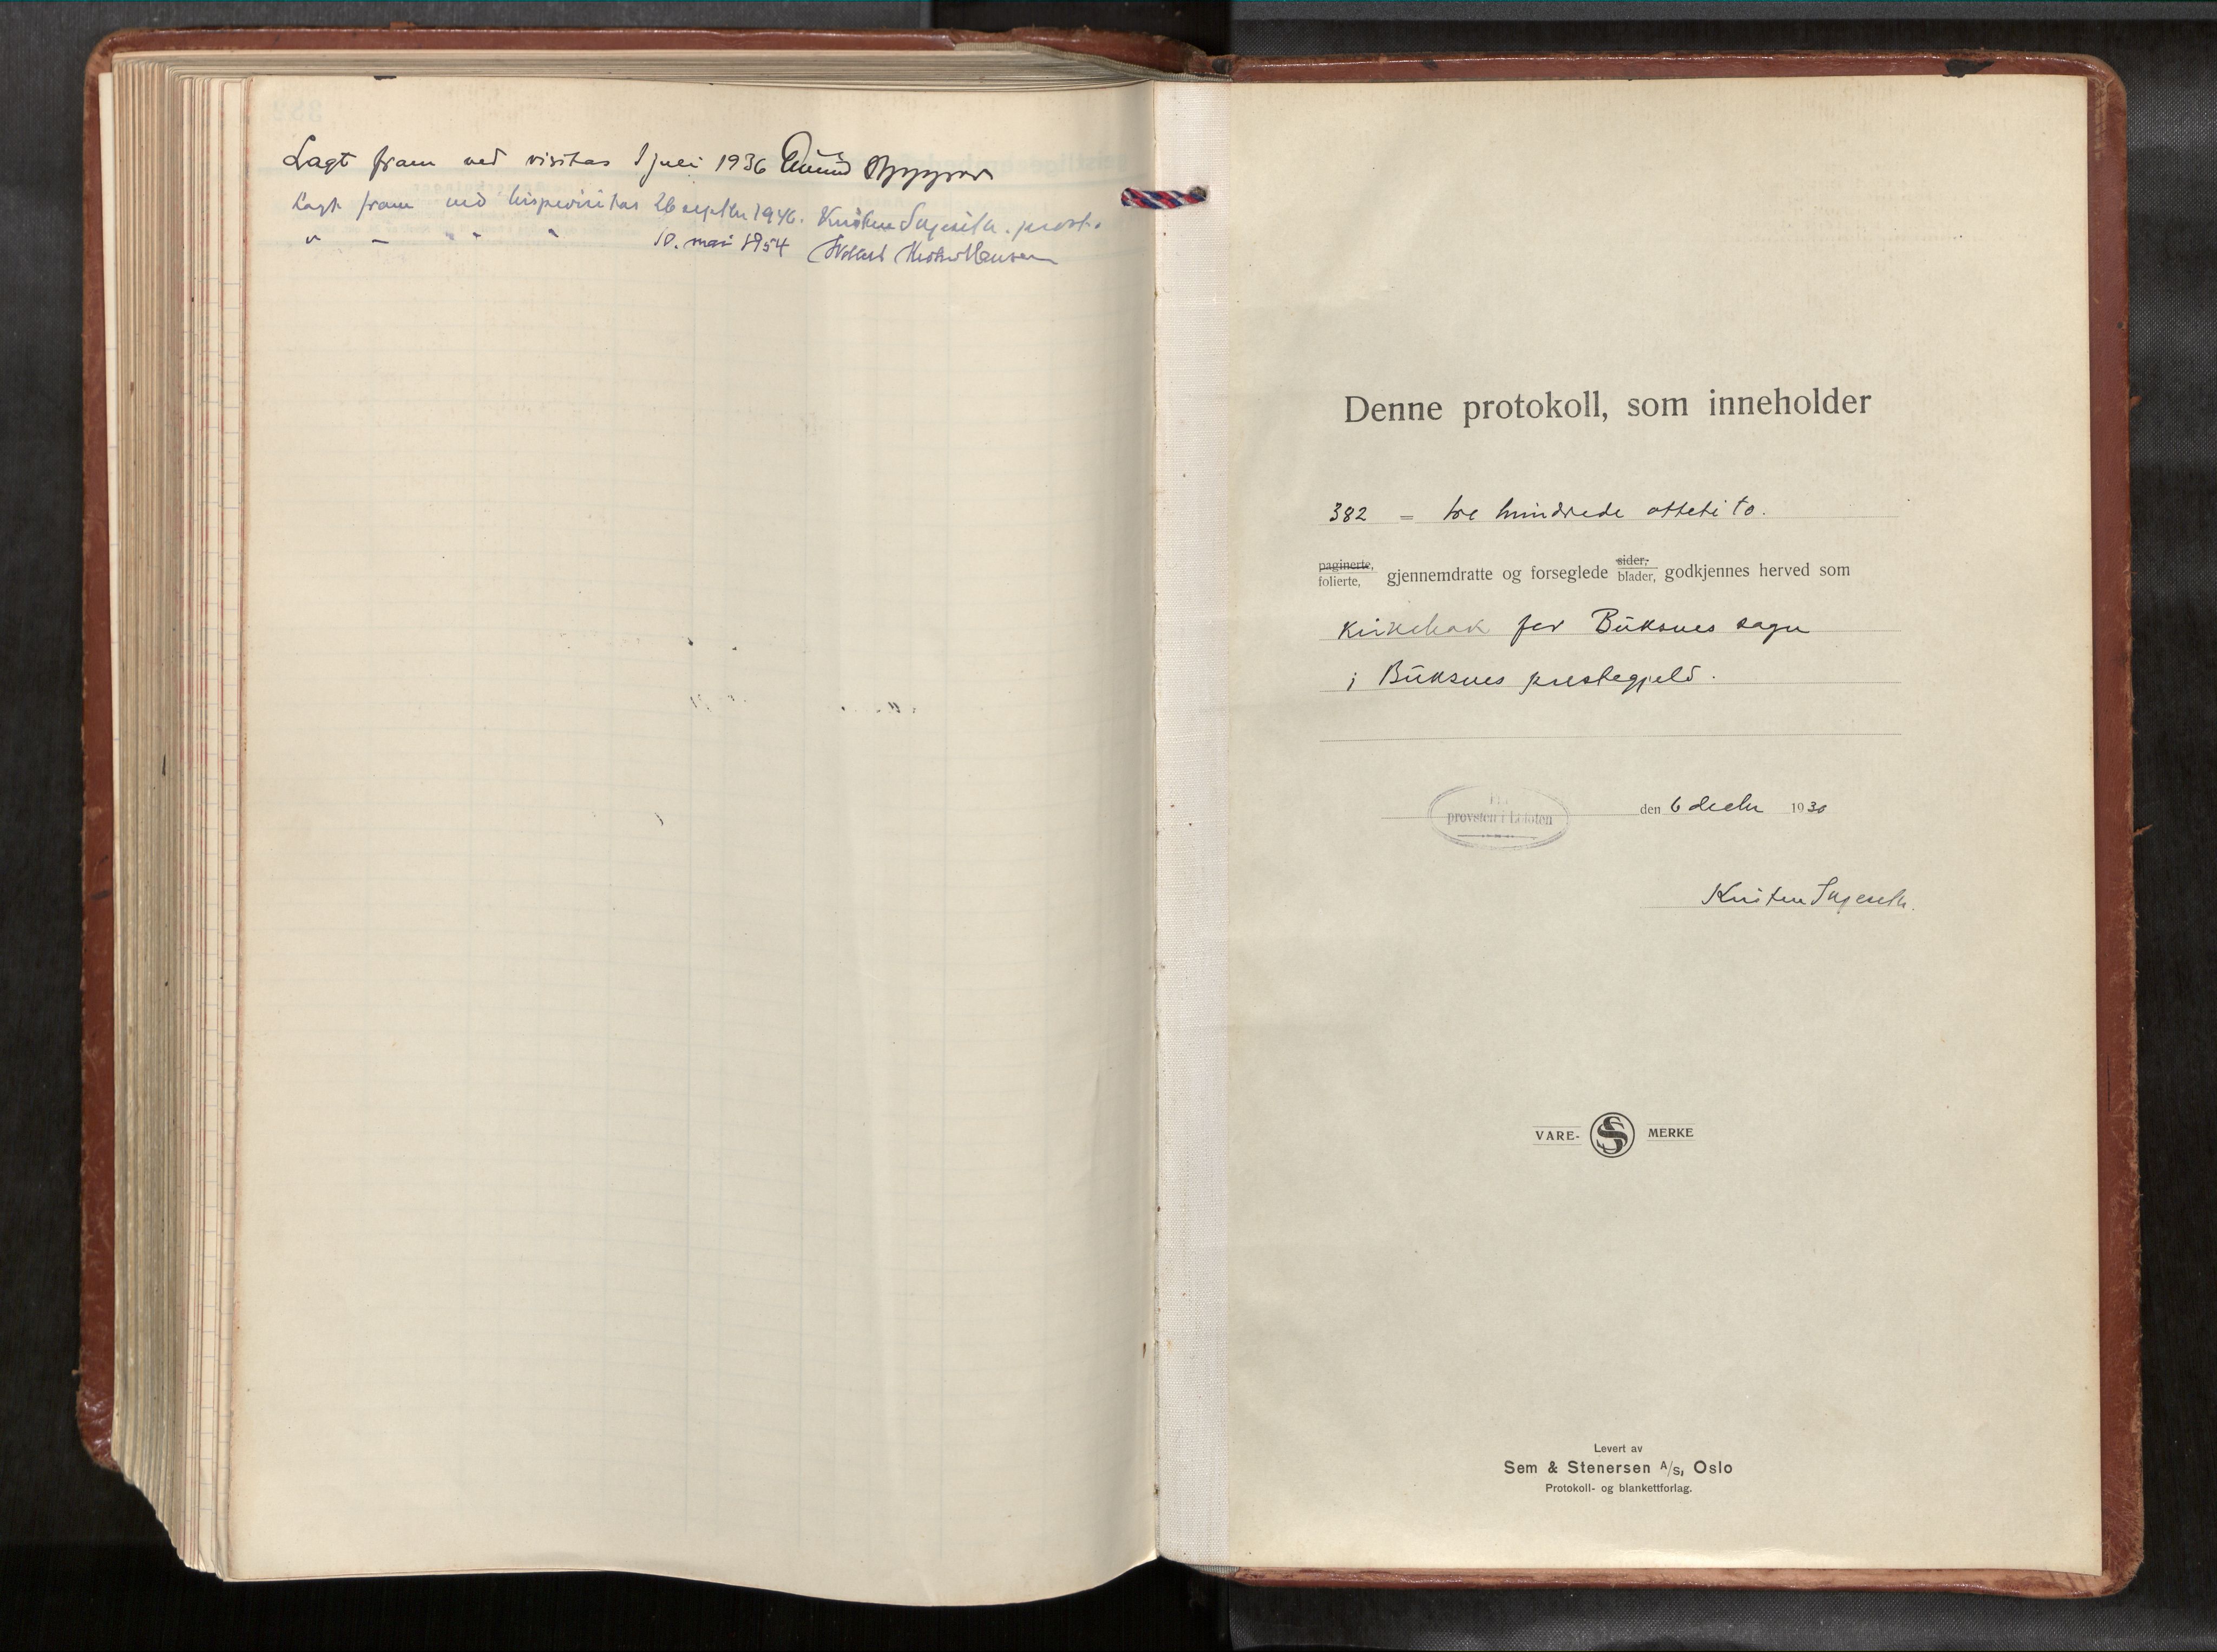 Lagt fram ved visitas 1 juli 1936
Lagt fram ved bispevisitas 26 septbr 1946. Kristen Skjeseth. prost.
" – " " " 10. mai 1954
Denne protokoll, som inneholder
382 = tre hundrede otteti to.
paginerte, folierte, gjennemdratte og forseglede sider, blader, godkjennes herved som
kirkebok for Buksnes sogn
i Buksnes prestegjeld.
provsten i Lofoten
den 6 decbr 1930
Kristen Skjeseth.
VARE- S MERKE
Levert av
Sem & Stenersen A/S, Oslo
Protokoll- og blankettforlag.